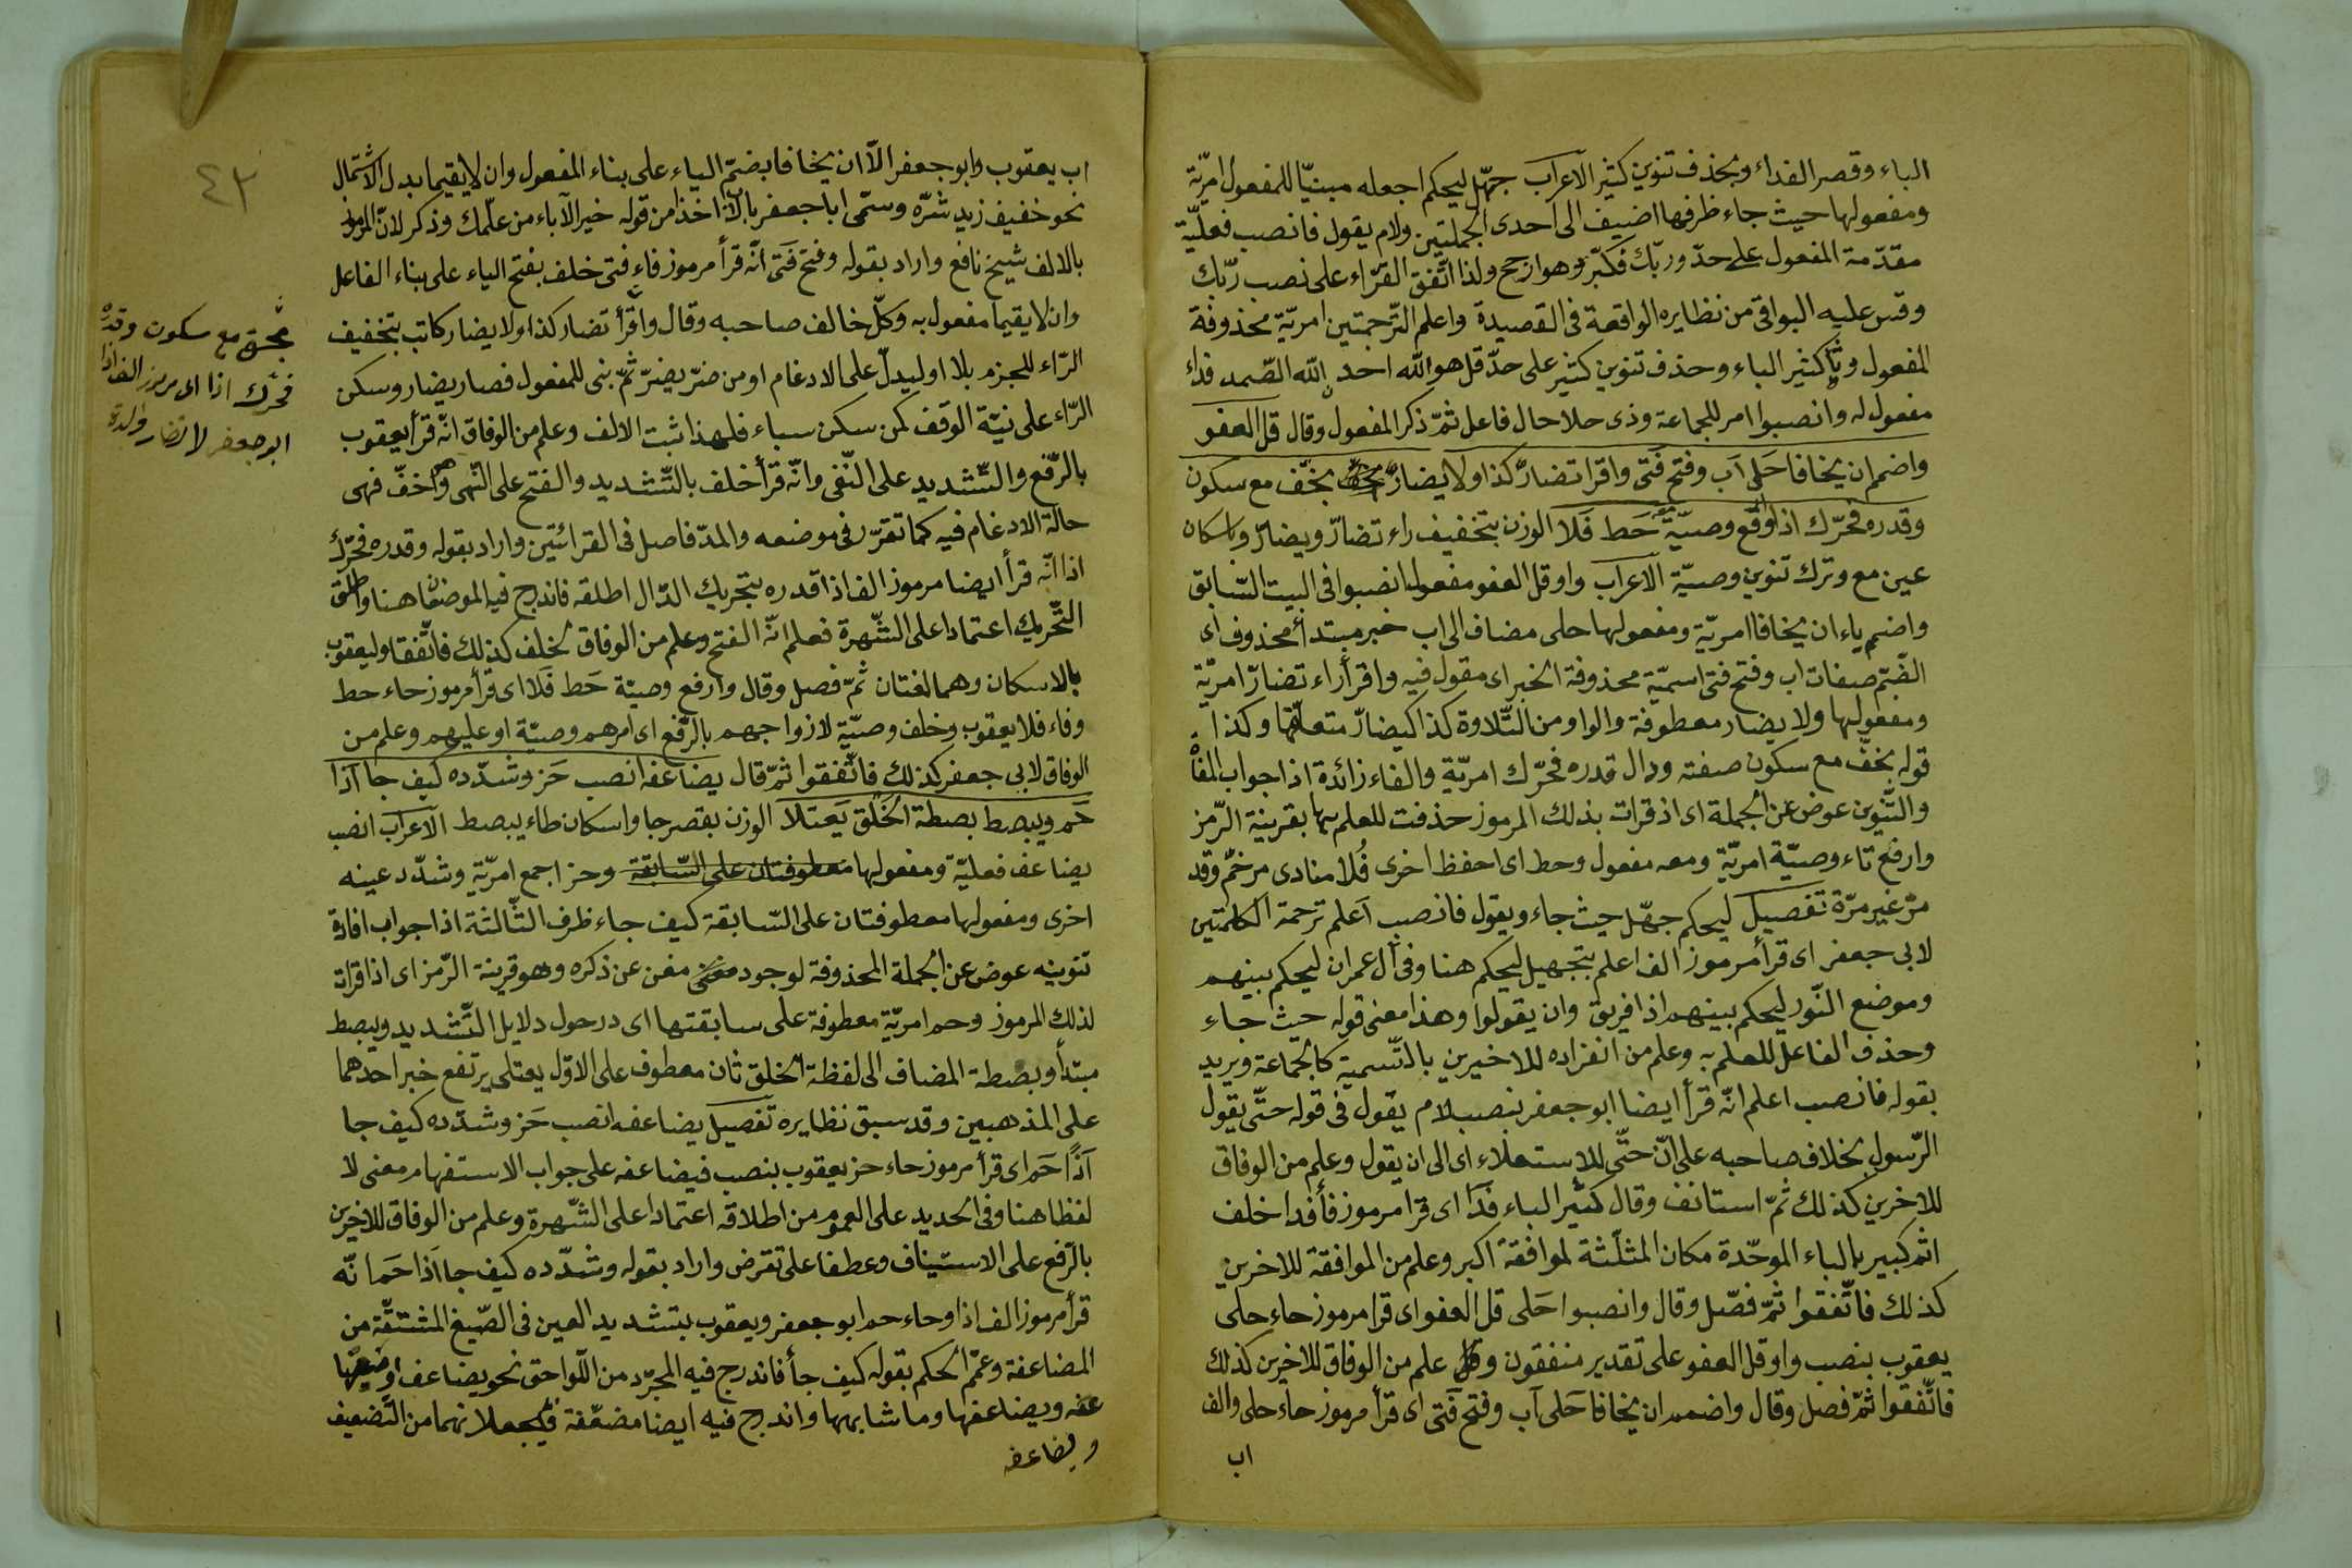 الباء وقصر الفداء وبحذف تنوين كثير الاعراب جهّل ليحكم اجعله مبنيّا للمفعول امريّة
ومفعولها حيث جاء ظرفها اضيف الى احدى الجملتين ولام يقول فانصب فعليّة
مقدّمة المفعول على حدّ وربّك فكبّر وهو ارجح ولذا اتّفق القرّاء على نصب ربّك
وقس عليه البواقى من نظايره الواقعة فى القصيدة واعلم الترّجمتين امريّة محذوفة
المفعول وثا كثير الباء وحذف تنوين كثير على حدّ قل هو الله احد الله الصّمد فداء
مفعول له وانصبوا امر للجماعة وذى حلا حال فاعل ثمّ ذكر المفعول وقال قل العفو
واضمم ان يخافا حَلى اَب وفتح فَتى واقرا تضارّ كذا ولا يضارّ بخفّ مع سكون
وقدره فحرّك اذا وارفع وصيّة حَط فَلا الوزن بتخفيف راء تضارّ ويضارّ وباسكان
عين مع وترك تنوين وصيّة الاعراب واو قل العفو مفعول انصبوا فى البيت السّابق
واضمم ياء ان يخافا امريّة ومفعولها حلى مضاف الى اب خبر مبتدأ محذوف اى
الضّمّ صفات اب وفتح فتى اسميّة محذوفة الخبر اى مقول فيه واقرأ راء تضارّ امريّة
ومفعولها ولا يضار معطوفة والواو من التّلاوة كذا كيضارّ متعلّقها وكذا
قوله بخفّ مع سكون صفته ودال قدره فحرّك امريّة والفاء زائدة اذا جواب المفأ
والتّنوين عوض عن الجملة اى اذ قرات بذلك المرموز حذفت للعلم بها بقرينة الرّمز
وارفع تاء وصيّة امريّة ومعه مفعول وحط اى احفظ اخرى فُلا منادى مرخّم وقد
مرّ غير مرّة تفصيل ليحكم جهّل حيث جاء ويقول فانصب اَعلم ترحمة الكلمتين
لابى جعفر اى قرأ مرموز الف اعلم بتجهيل ليحكم هنا وفى آل عمران ليحكم بينهم
وموضع النّور ليحكم بينهم اذا فريق وان يقولوا وهذا معنى قوله حيث جاء
وحذف الفاعل للعلم به وعلم من انفزاده للاخيرين بالتّسمية كالجماعة ويريد
بقوله فانصب اعلم انّه قرأ ايضا ابو جعفر بنصب لام يقول فى قوله حتّى يقول
الرّسول بخلاف صاحبه على انّ حتّى للاستعلاء اى الى ان يقول وعلم من الوفاق
للاخرين كذلك ثمّ استانف وقال كثير الباء فَدَا اى قرا مرموز فأ فدا خلف
اثم كبير بالباء الموحّدة مكان المثلّثة لموافقة اكبر وعلم من الموافقة للاخرين
كذلك فاتّفقوا ثمّ فصّل وقال وانصبوا حَلى قل العفو اى قرا مرموز حاء حلى
يعقوب بنصب واو قل العفو على تقدير منفقون علم من الوفاق للاخرين كذلك
فاتّفقوا ثمّ فصل وقال واضمم ان يخافا حَلى اَب وفتح فَتى اى قرأ مرموز حاء حلى والف
اب
٤٣
اب يعقوب وابو جعفر الاّ ان يخافا بضمّ الياء على بناء المفعول وان لا يقيما بدل الاشتمال
نحو خفيف زيد شرّه وسمّى ابا جعفر بالاب اخذا من قوله خير الآباء من علّمك وذكر لانّ المرموز
بالالف شيخ نافع واراد بقوله وفتح فَتى انّه قرأ مرموز فاء فتى خلف بفتح الياء على بناء الفاعل
وان لا يقيما مفعول به وكلّ خالف صاحبه وقال واقرأ تضار كذا ولا يضار كاتب بتخفيف
الرّاء للجزم بلا او ليدلّ على الادغام او من ضرّ يضرّ ثمّ بنى للمفعول فصار يضار وسكن
الرّاء على نيّة الوقف كمن سكن سباء فلهذا ثبت الالف وعلم من الوفاق انّه قرأ يعقوب
بالرّفع والتّشديد على النّفى وانّه قرأ خلف بالتّشديد والفتح على النّهى واخفّ فهى
حالة الادغام فيه كما تقرّر فى موضعه والمدّ فاصل فى القرائتين واراد بقوله وقدره فحرّك
اذا انّه قرأ ايضا مرموز الف اذا قدره بتحريك الدّال اطلقه فاندرج فيه الموضعان هنا واطلق
التّحريك اعتمادا على الشّهرة فعلم انّه الفتح وعلم من الوفاق لخلف كذلك فاتّفقا وليعقوب
بالاسكان وهما لغتان ثمّ فصل وقال وارفع وصيّة حَط فَلا اى قرأ مرموز حاء حط
وفاء فلا يعقوب وخلف وصيّة لازواجهم بالرّفع اى امرهم وصيّة او عليهم وعلم من
الوفاق لابى جعفر كذلك فاتّفقوا ثمّ قال يضاعفه انصب حَز وشدّده كيف جا اذا
حَم ويبصط بصطة الخَلق يَعتلا الوزن بقصر جا واسكان طاء يبصط الاعراب انصب
يضاعف فعليّة ومفعولها معطوفتان على السّابقة وحز اجمع امريّة وشدّد عينه
اخرى ومفعولها معطوفتان على السّابقة كيف جاء ظرف الثّالثة اذا جواب افادة
تنوينه عوض عن الجملة المحذوفة لوجود مغن عن ذكره وهو قرينة الرّمز اى اذا قرات
لذلك المرموز وحم امريّة معطوفة على سابقتها اى در حول دلايل التّشديد ويبصط
مبتدأ وبصطة المضاف الى لفظة الخلق ثان معطوف على الاوّل يعتلى يرتفع خبر احدهما
على المذهبين وقد سبق نظايره تفصيل يضاعفه انصب حَز وشدّده كيف جا
اَذًا حَم اى قرأ مرموز حاء حز يعقوب بنصب فيضاعفه على جواب الاستفهام معنى لا
لفظا هنا وفى الحديد على العموم من اطلاقه اعتمادا على الشّهرة وعلم من الوفاق للاخرين
بالرّفع على الاستيناف وعطفا على تقرض واراد بقوله وشدّده كيف جا اَذا حَم انّه
قرأ مرموز الف اذا وحاء حم ابو جعفر ويعقوب بتشديد العين فى الصّيغ المشتقّة من
المضاعفة وعمّم الحكم بقوله كيف جأ فاندرج فيه المجرّد من اللّواحق نحو يضاعف
عفه ويضاعفها وما شابهها واندرج فيه ايضا مضعّفة فيجعلا نهما من التّضعيف
ويضاعفه
بخفّ مع سكون وقدره
فحرّك اذا اى مرموز الف اذا
ابو جعفر لا تضار والدة